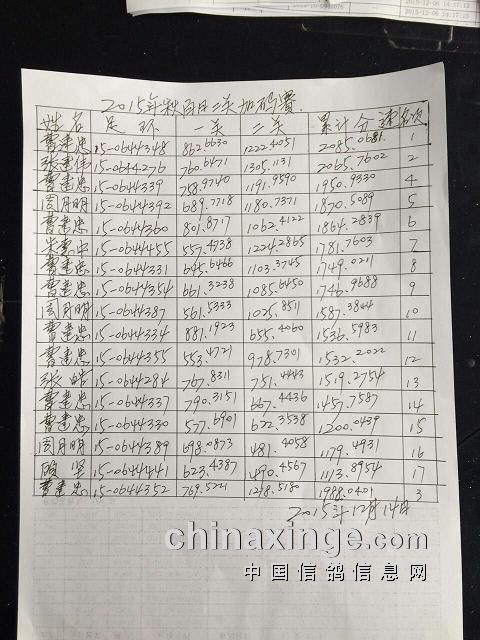 2015-12-06 14:17:12
2015-12-06 14:17:15
2015年秋百日二关加码赛
姓名 足环 一关 二关 累计分速 名次
曹建忠 15-0644348 862.6630 1222.4051 2085.0681 1
张建伟 15-0644276 760.6471 1305.1131 2065.7602 2
曹建忠 15-0644339 758.9740 1191.9590 1950.9330 4
周月明 15-0644392 689.7718 1180.7371 1870.5089 5
曹建忠 15-0644360 801.8717 1062.4122 1864.2839 6
朱 中 15-0644455 557.4738 1224.2865 1781.7603 7
曹建忠 15-0644331 645.6466 1103.3745 1749.0211 8
曹建忠 15-0644354 661.3238 1085.6450 1746.9688 9
周月明 15-0644387 561.5333 1025.8511 1587.3844 10
曹建忠 15-0644334 881.1923 655.4060 1536.5983 11
曹建忠 15-0644355 553.4721 978.7301 1532.2022 12
张 15-0644284 767.8311 751.4443 1519.2754 13
曹建忠 15-0644337 790.3151 667.4436 1457.7587 14
曹建忠 15-0644330 577.6901 622.3538 1200.0439 15
周月明 15-0644389 698.0873 481.4058 1179.4931 16
15-0644441 623.4387 490.4567 1113.8954 17
曹建忠 15-0644352 769.5221 1218.5180 1988.0401 3
2015年12月14日
chinaxinge.com
中国信鸽信息网